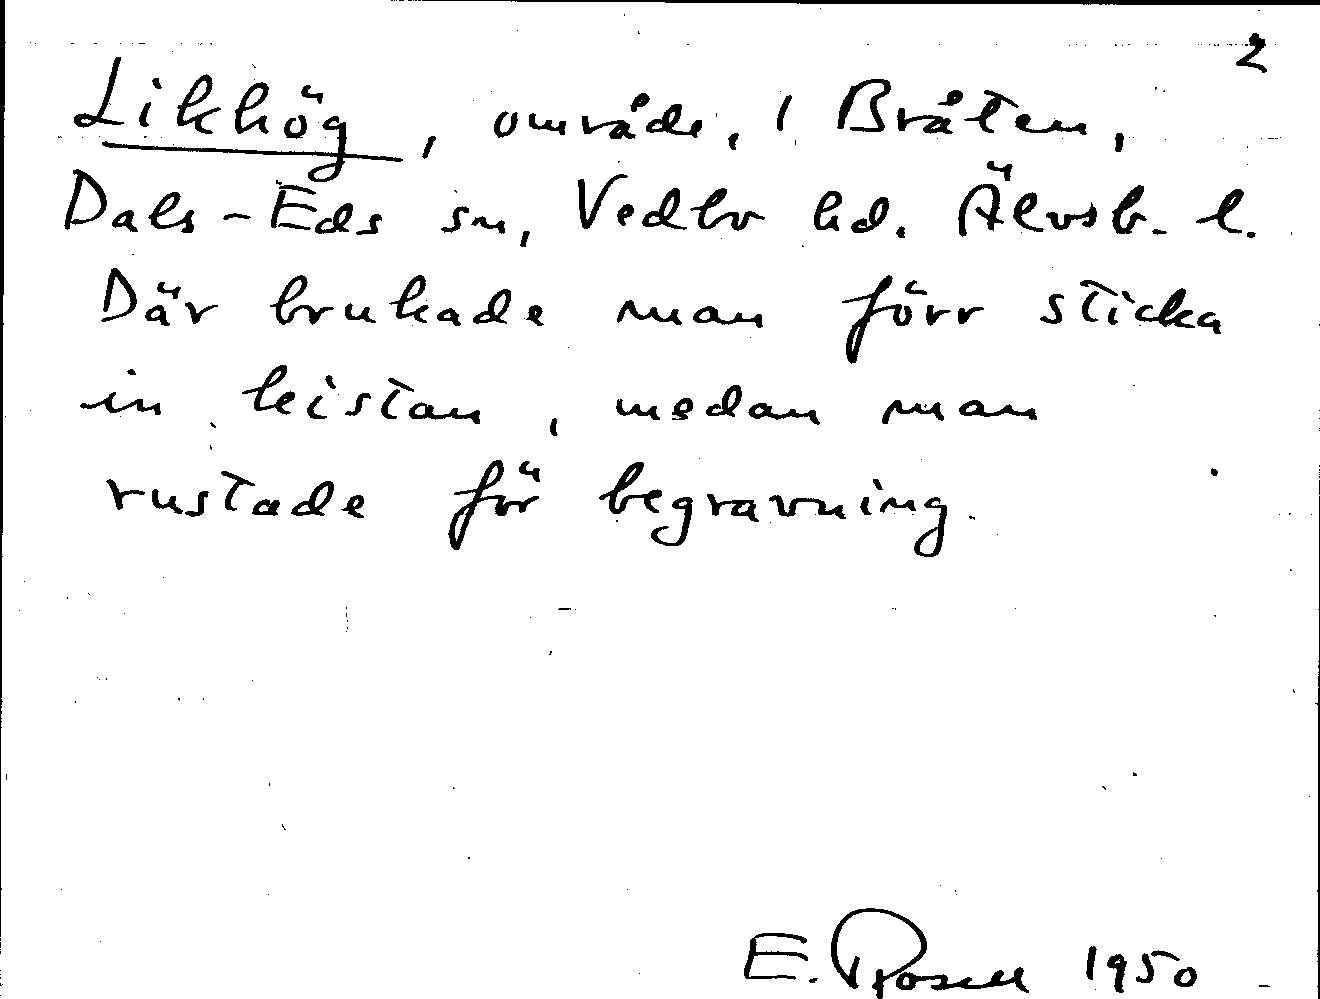 2
Likhög, område, 1 Bråten,
Dals-Eds sn, Vedbo hd. Älvsb. l.
Där brukade man förr sticka
in kistan, medan man
rustade för begravning.
E. Rosell 1950